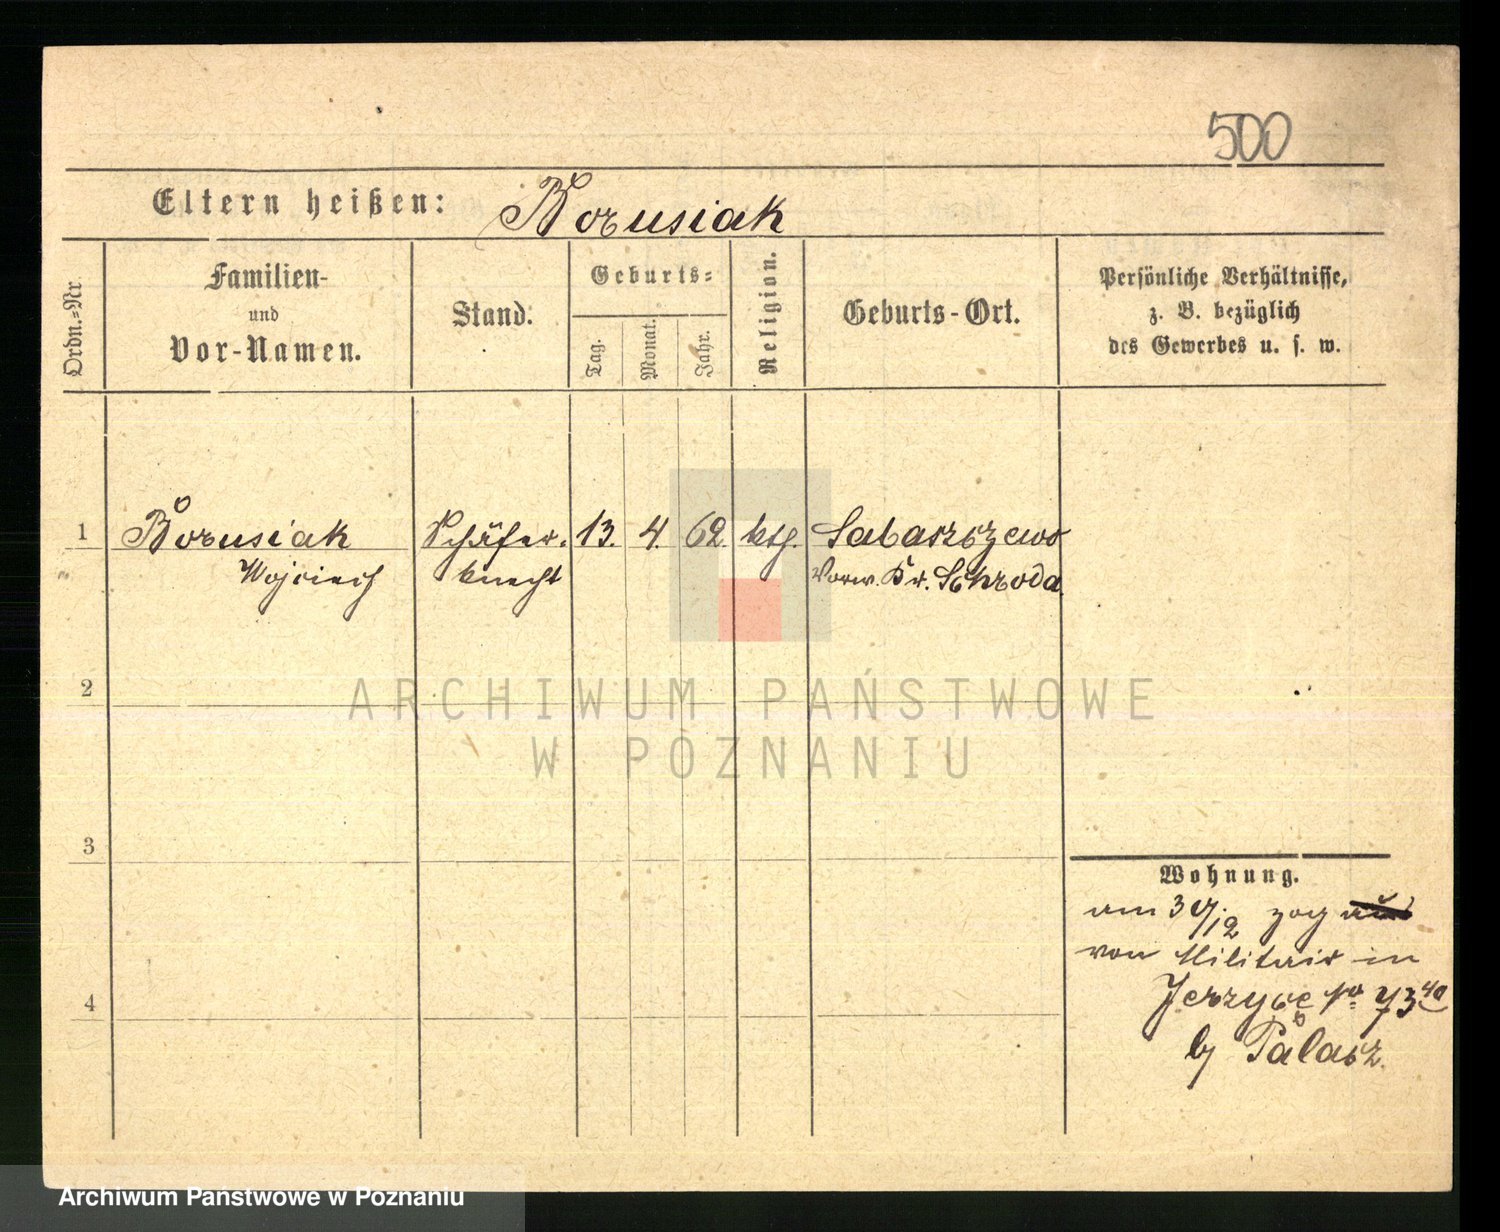 500
Eltern heißen: Borusiak
Ordn.-Nr
Familien-
und
Vor-Namen.
Stand.
Geburts-
Tag.
Monat.
Jahr.
Religion.
Geburts-Ort.
Persönliche Verhältnisse,
z. B. bezüglich
des Gewerbes u. s. w.
1 Borusiak Schäfer- 13. 4. 62. ktl.
Wojciech knecht Vorw. Kr. Schroda
2
ARCHIWUM PAŃSTWOWE
W POZNANIU
3
Wohnung.
am 30/12 zog
von Militair in
Jerzyce No 73
by Palacz.
4
Archiwum Państwowe w Poznaniu